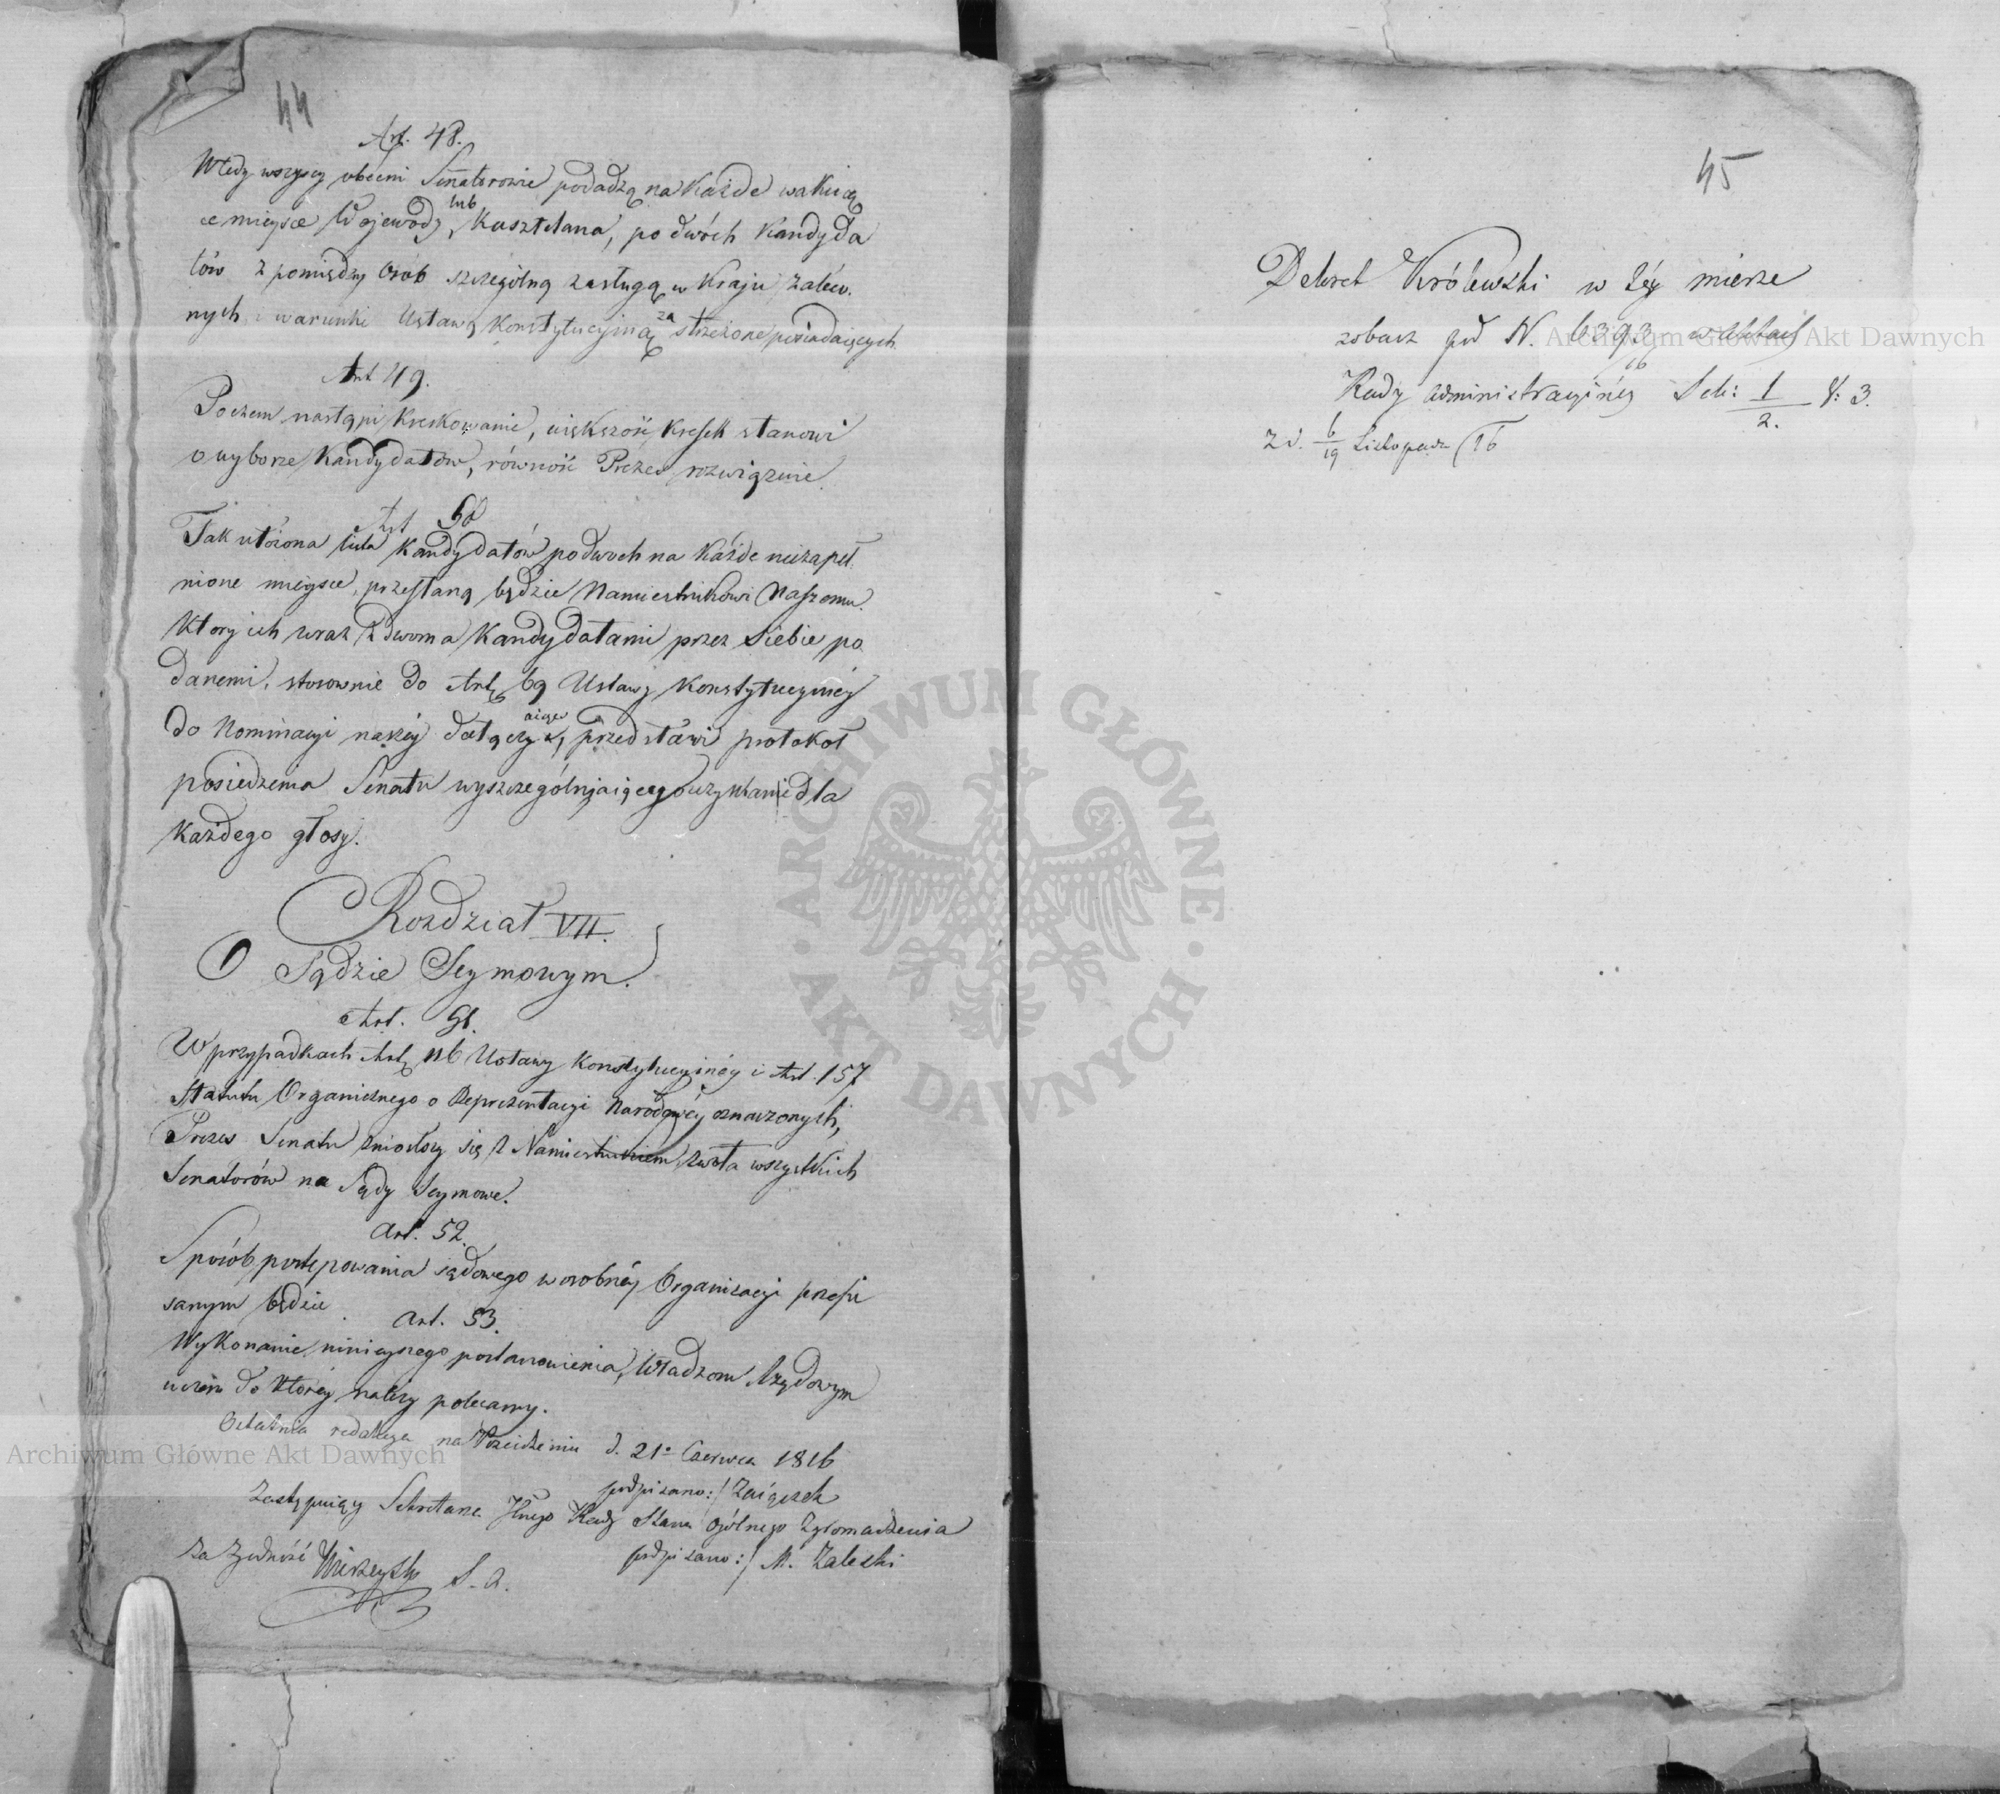 44
Art. 48.
Wtedy wszyscy obecni Senatorowie podadzą na każde wakuią
ce mieysce Wojewody lub Kasztelana, po dwóch Kandyda
tów z pomiędzy Osób szczególną zasługą w Kraju zaleco-
nych i warunki Ustawą Konstytucyiną zastrzeżone posiadaiących
Art 49.
Poczem nastąpi kreskowanie, większość kresek stanowi
o wyborze Kandydatów, równość Prezes rozwiązuie.
Art 50
Tak ułożona lista Kandydatów po dwoch na każde niezapeł-
nione mieysce, przesłaną będzie Namiestnikowi Naszemu.
Który ich wraz z dwoma Kandydatami przez siebie po
danemi, stosownie do Art. 69 Ustawy Konstytucyiney
do Nominacyi naszey dołączaiąc, przedstawi protokoł
posiedzenia Senatu wyszczególniaiącego uzyskane dla
każdego głosy.
Rozdział VII.
O Sądzie Seymowym.
Art. 51.
W przypadkach Art. 116 Ustawy Konstytucyinéy i Art. 157
Statutu Organicznego o Reprezentacyi Narodowéy oznaczonych,
Prezes Senatu zniosłszy się z Namiestnikiem, zwoła wszystkich
Senatorów na Sądy Seymowe.
Art. 52.
Sposób postępowania sądowego w osobnéy Organizacyi przepi
sanym będzie.
Art. 53.
Wykonanie ninieyszego postanowienia, Władzom Rządowym
w czém do któréy należy polecamy.
Ostatnia redakcya na Posiedzeniu d. 21º Czerwca 1816
podpisano:/ Zaiączek
Zastępuiący Sekretarza Jlnego Rady Stanu Ogólnego Zgromadzenia
podpisano:/ M. Zaleski
Za Zgodność S. A.
45
Dekret Królewski w téy mierze
zobacz pod N. 6393 w aktach
16
Rady Administracyinéy Sek: 1/2. V: 3.
z d. 6/19 Listopada 16
Archiwum Główne Akt Dawnych
Archiwum Główne Akt Dawnych
ARCHIWUM GŁÓWNE · AKT DAWNYCH ·